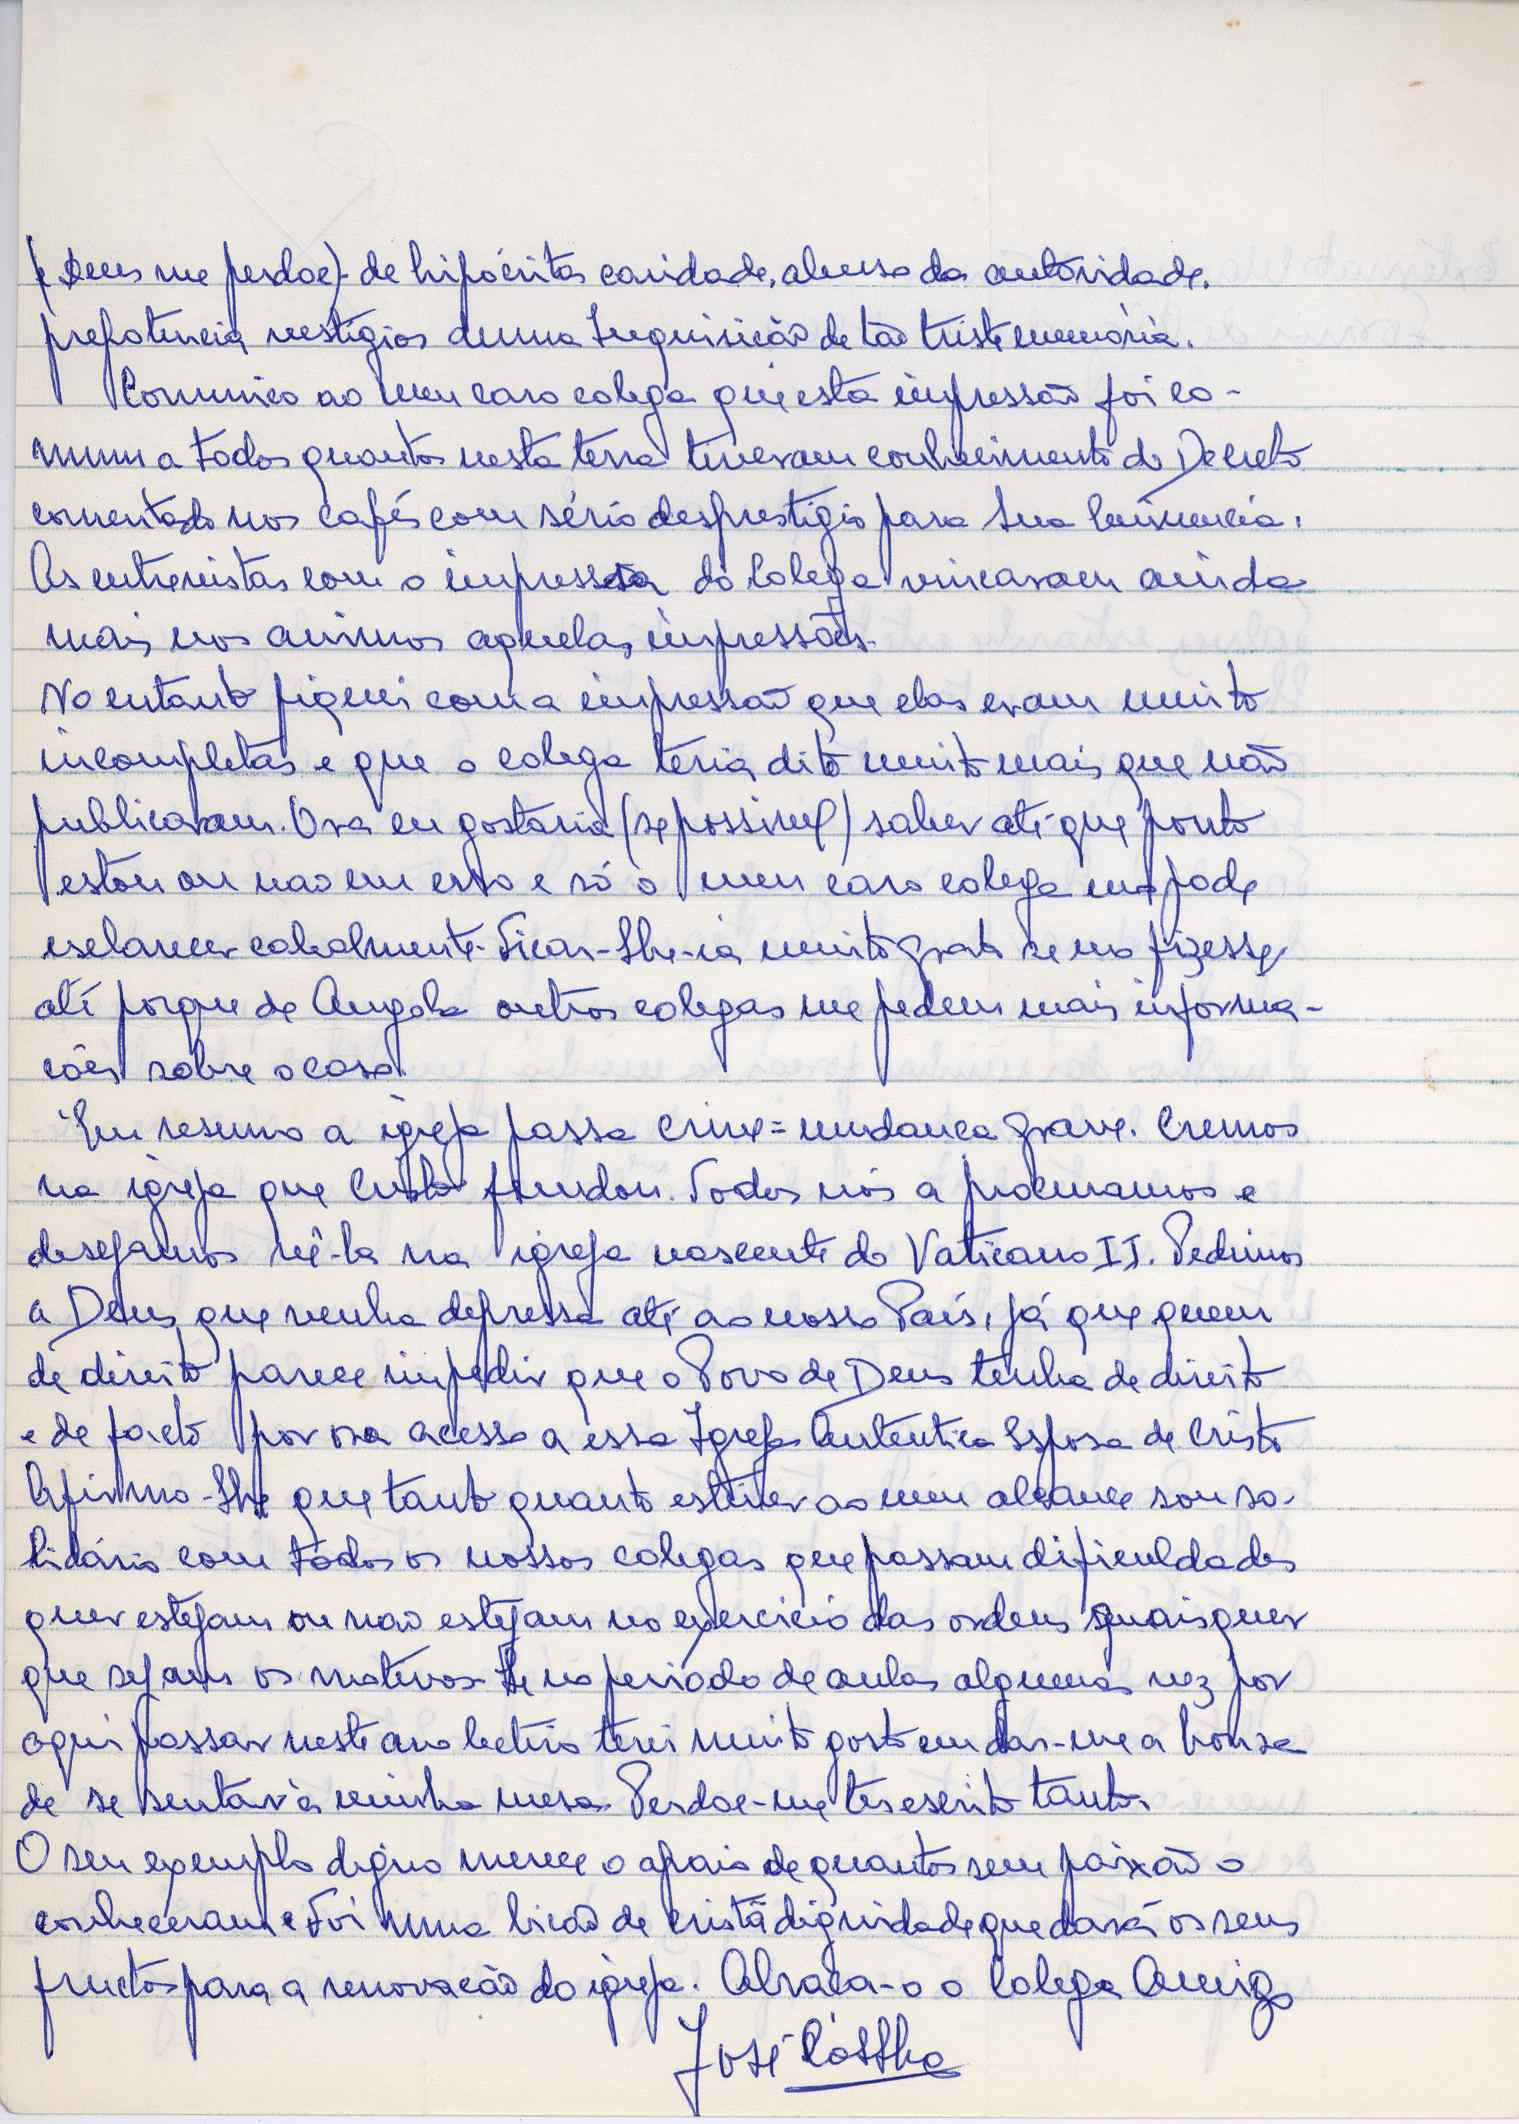 (e Deus me perdoe)- de hipócritas caridade, abuso da autoridade.
prepotencia vestígios duma Inquisição de tão triste memória.
Comunico ao meu caro colega que esta impressão foi co-
mum a todos quantos nesta terra tiveram conhecimento do Decreto
comentado nos cafés com sério desprestigio para Sua Eminencia.
As entrevistas com o impressão do Colega vincaram ainda
mais nos animos aquelas impressões.
No entanto fiquei com a impressão que elas eram muito
incompletas e que o colega teria dito muito mais que não
publicaram. Ora eu gostaria (se possivel) saber até que ponto
estou ou nao em erro e só o meu caro colega mo pode
esclarecer cabalmente. Ficar-lhe-ia muito grato se mo fizesse,
até porque de Angola outros colegas me pedem mais informa-
ções sobre o caso.
Em resumo a igreja passa crise = mudanca grave. Cremos
na igreja que Cristo fundou. Todos nós a procuramos e
desejamos vê-la na igreja nascente do Vaticano II. Pedimos
a Deus que venha depressa até ao nosso País, já que quem
de direito parece impedir que o Povo de Deus tenha de direito
e de facto por ora acesso a essa Igreja Autentica Esposa de Cristo
Afirmo-lhe que tanto quanto estiver ao meu alcance sou so-
lidário com todos os nossos colegas que passam dificuldades
quer estejam ou nao estejam no exercicio das ordens quaisquer
que sejam os motivos. Se no periodo de aulas alguma vez por
aqui passar neste ano lectivo terei muito gosto em dar-me a honra
de se sentar à minha mesa. Perdoe-me ter escrito tanto.
O seu exemplo digno merece o apoio de quantos sem paixão o
conheceram e foi uma lição de cristã dignidade que dará os seus
fructos para a renovacão da igreja. Abraca-o o Colega Amigo
José